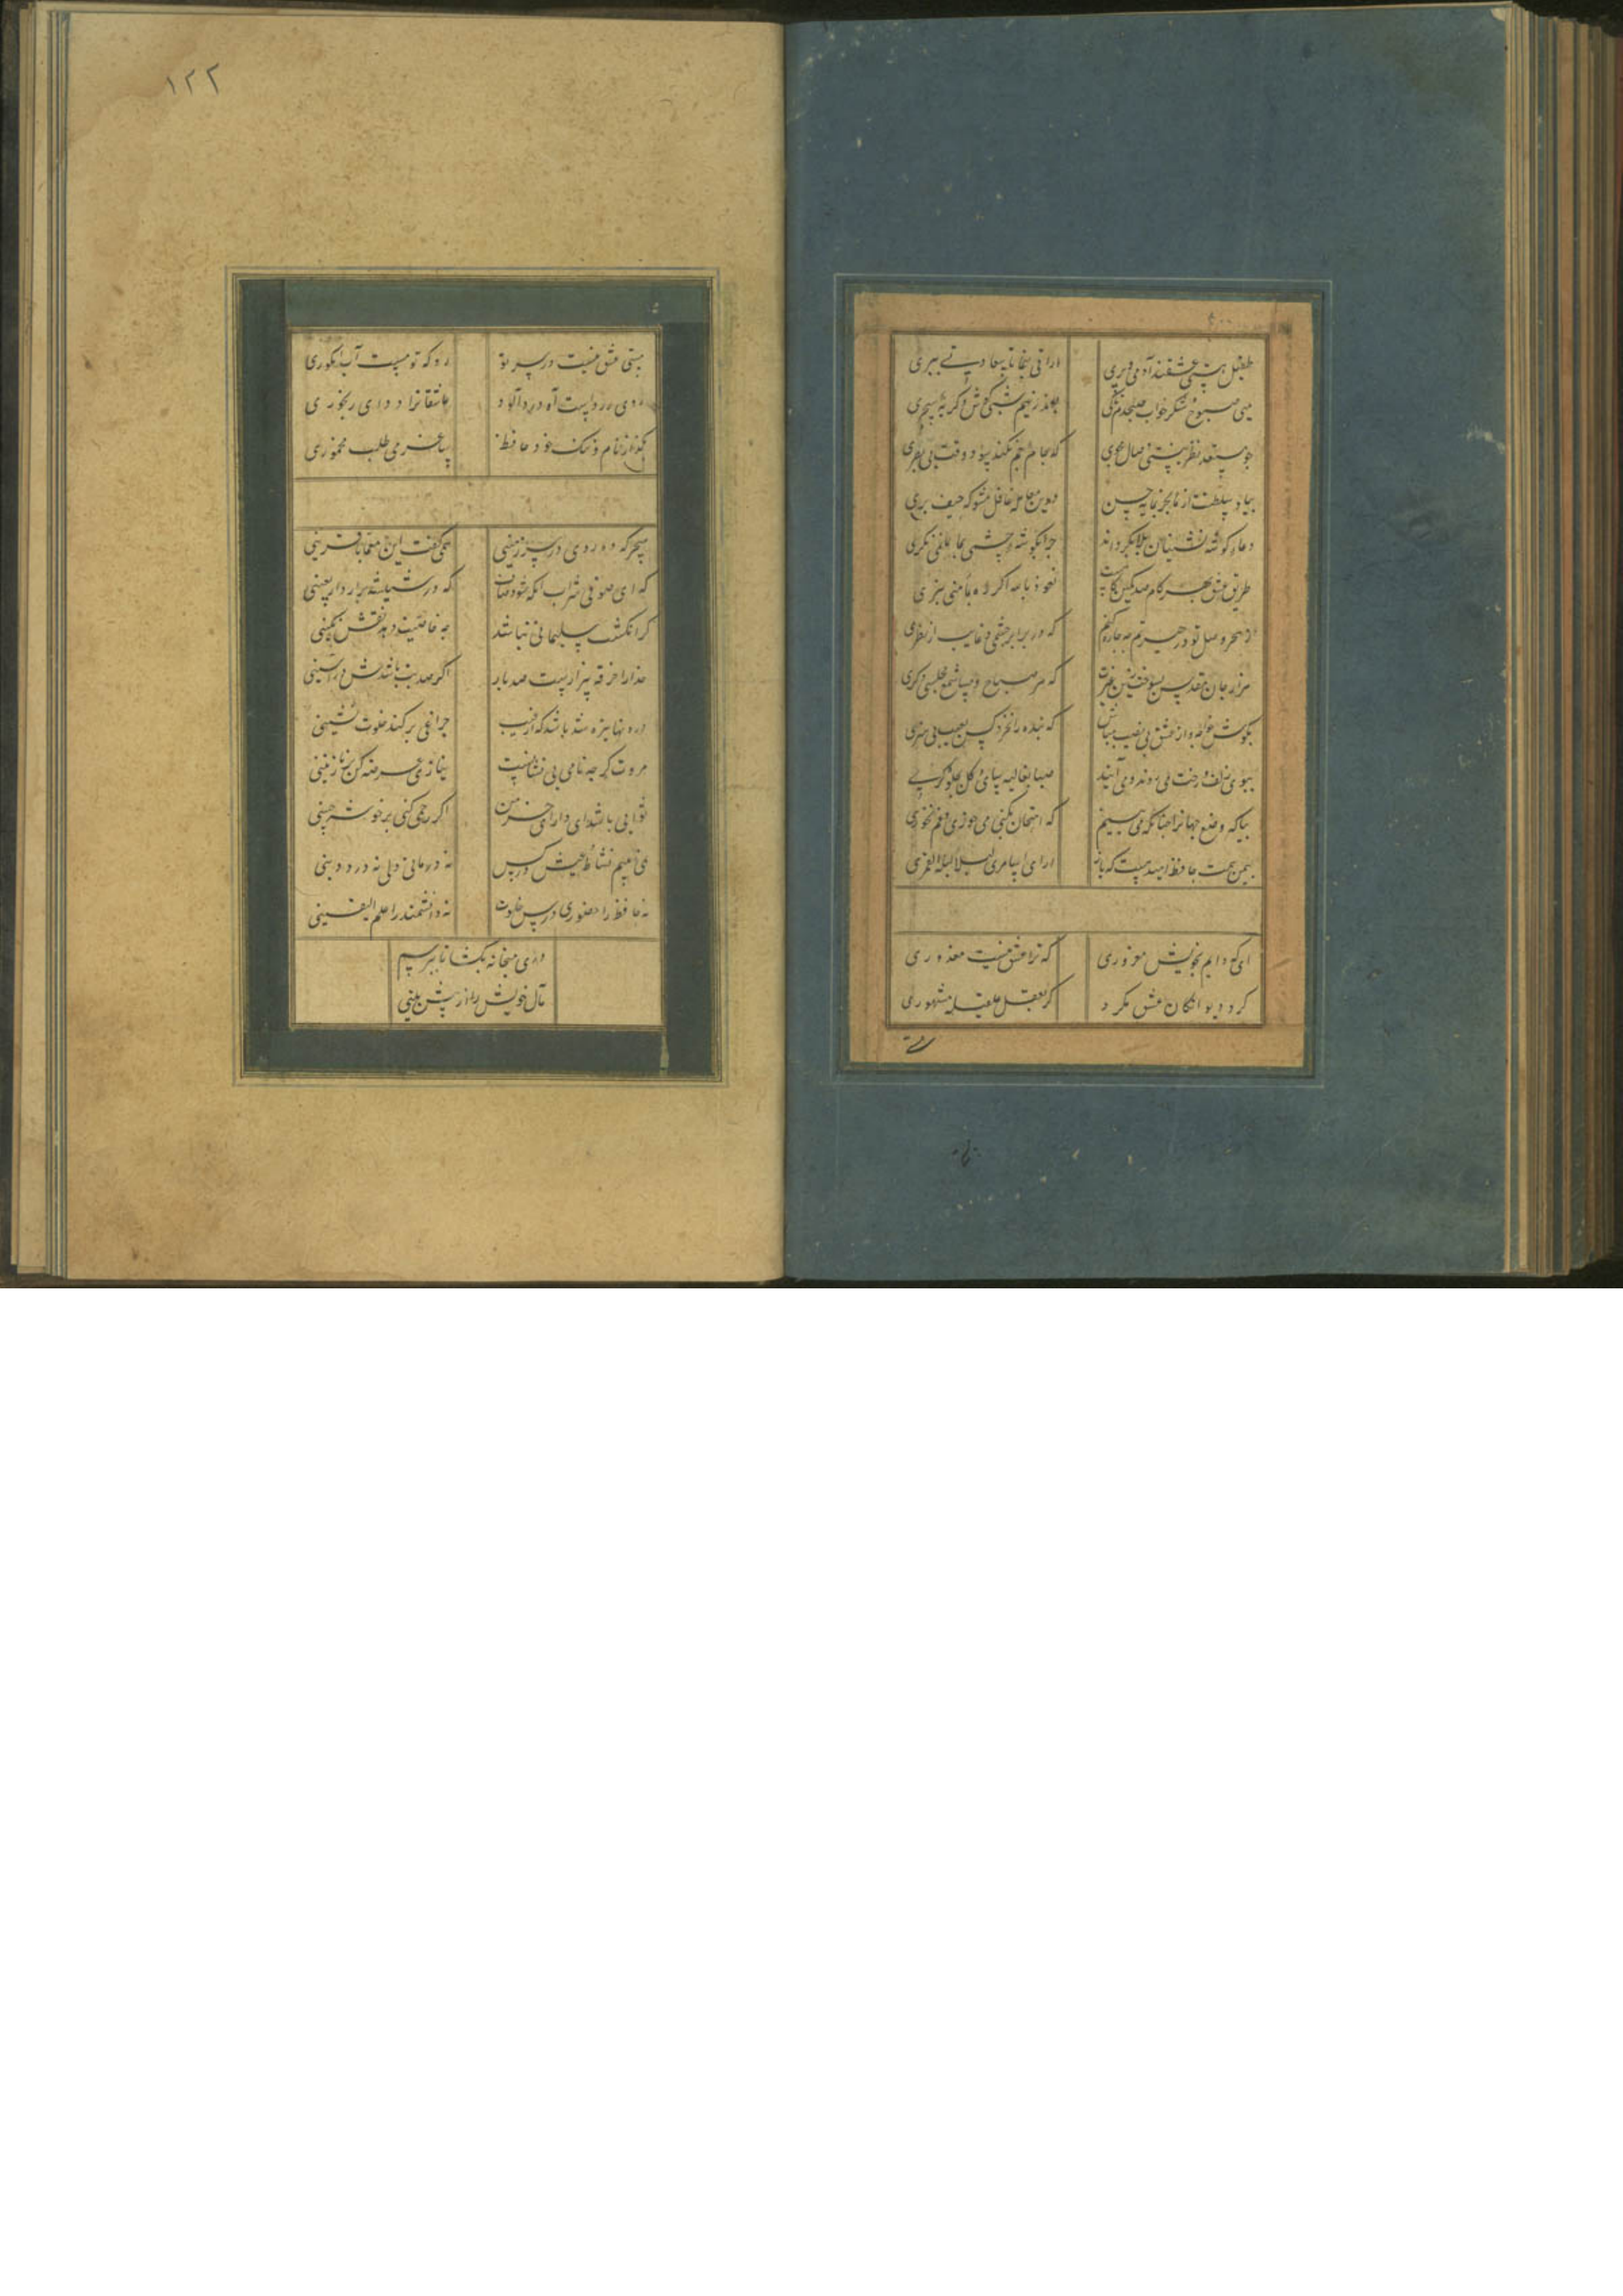 طفیل هستی عشقند آدمی و پری
ارادتی بنما تا سعادتی ببری
می صبوح و شکر خواب صبحدم تا کی
بعذر نیم شبی کوش و گریه سحری
چو مستعد نظر نیستی وصال مجوی
که جام جم نکند سود وقت بی بصری
بیا و سلطنت از ما بخر بمایه حسن
درین معامله غافل مشو که حیف بری
دعاء گوشه نشینان بلا بگرداند
چرا بگوشه چشمی بما نمی نگری
طریق عشق
نعوذ بالله اگر ره بمأمنی نبری
ز هجر و وصل تو در حیرتم چه چاره کنم
که در برابر چشمی و غایب از نظری
هزار جان مقدس بسوخت زین غیرت
که هر صباح و مسا شمع مجلس دگری
بکوش خواجه و از عشق بی نصیب مباش
که بنده را نخرد کس بعیب بی هنری
ببوی زلف و رخت می روند و می آیند
صبا بغالیه سایی و گل بجلوه گری
بیا که وضع جهانرا چنانکه می بینم
که امتحان بکنی می خوری و غم نخوری
بیمن همت حافظ امید هست که باز
اری اسامر لیلای لیلة القمری
ای که دایم بخویش مغروری
که ترا عشق نیست معذوری
گرد دیوانگان عشق مگرد
گر بعقل عقیله مشهوری
۱۲۲
مستی عشق نیست در سر تو
رو که تو مست آب انگوری
روی زردست و آه درد آلود
عاشقانرا دوای رنجوری
بگذر از نام و ننگ خود حافظ
ساغر می طلب مخموری
سحرگه ره روی در سرزمینی
همی گفت این معما با قرینی
که ای صوفی شراب آنگه شود صاف
که در شیشه برآرد اربعینی
گر انگشت سلیمانی نباشد
چه خاصیت دهد نقش نگینی
خدا زان خرقه بیزارست صد بار
اگر صد بت باشدش در آستینی
درونها تیره شد باشد که از غیب
چراغی بر کند خلوت نشینی
مروت گرچه نامی بی نشانست
نیازی عرضه کن بر نازنینی
ثوابی باشد ای دارای خرمن
اگر رحمی کنی بر خوشه چینی
نمی بینم نشاط عیش در کس
نه درمانی دلی نه درد دینی
نه حافظ را حضوری درس خلوت
نه دانشمند را علم الیقینی
ره میخانه بنما تا بپرسم
مآل خویش را از پیش بینی